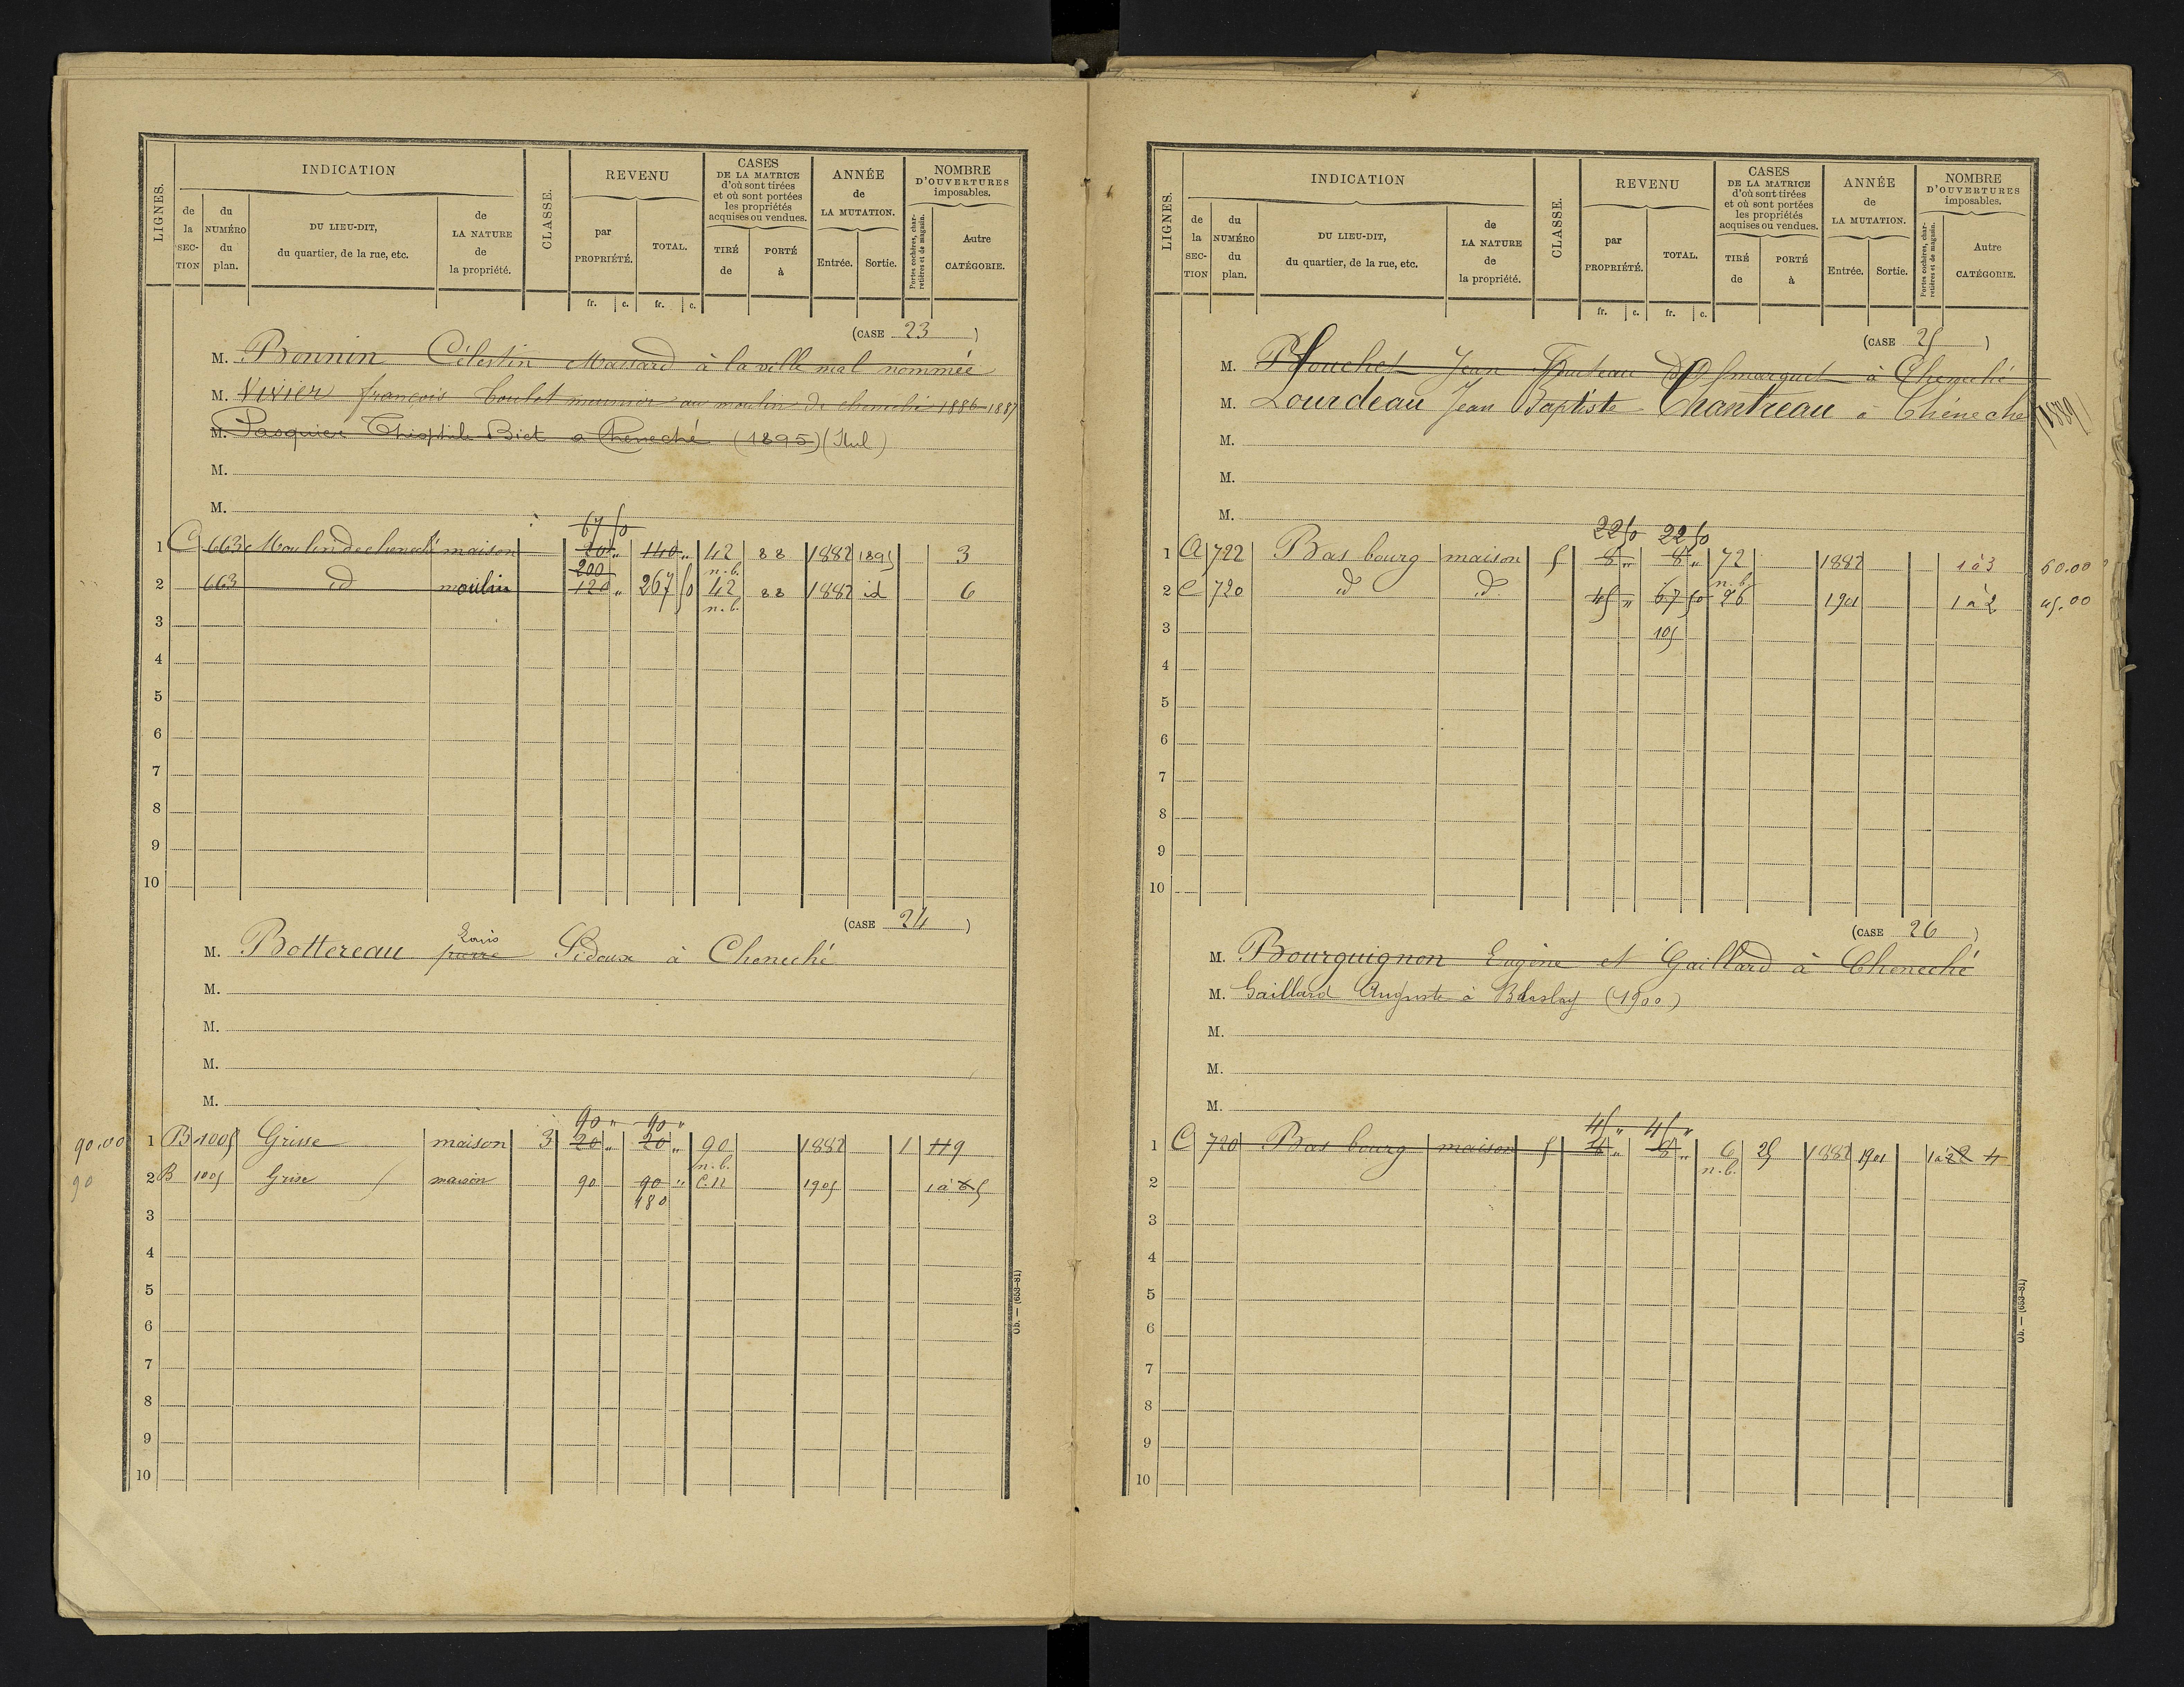 LIGNES.
INDICATION
de la SECTION
du NUMÉRO du plan.
DU LIEU-DIT, du quartier, de la rue, etc.
de LA NATURE de la propriété.
CLASSE.
REVENU
par PROPRIÉTÉ.
TOTAL.
CASES DE LA MATRICE d'où sont tirées et où sont portées les propriétés acquises ou vendues.
TIRÉ de
PORTÉ à
ANNÉE de LA MUTATION.
Entrée.
Sortie.
NOMBRE D'OUVERTURES imposables.
Portes cochères, charretières et de magasin.
Autre CATÉGORIE.
fr. c. fr. c.
(CASE 23)
M. Bonnin Célestin Massard à la ville mal nommée
M. Vivier françois Coulet meunier au moulin de cheneché 1886 1887
M. Pasquier Théophile Biet a Cheneché (1895) (Nul)
M.
M.
67 50
1 C 663 Moulin de cheneché maison 20 " 140 " 42 88 1882 1895 3
200 n.b.
2 663 id moulin 120 " 267 50 42 88 1882 id 6
n.b.
3
4
5
6
7
8
9
10
(CASE 24)
Louis
M. Bottereau pierre Sidoux à Cheneché
M.
M.
M.
M.
90 " 90 "
90.00 1 B 1005 Grisse maison 3 20 " 20 " 90 1882 1 119
n.b.
90 2 B 1005 Grise maison 90 90 " C.N 1905 1 à 5
180
3
4
5
6
7
8
9
10
Ob. — (653-81)
LIGNES.
INDICATION
de la SECTION
du NUMÉRO du plan.
DU LIEU-DIT, du quartier, de la rue, etc.
de LA NATURE de la propriété.
CLASSE.
REVENU
par PROPRIÉTÉ.
TOTAL.
CASES DE LA MATRICE d'où sont tirées et où sont portées les propriétés acquises ou vendues.
TIRÉ de
PORTÉ à
ANNÉE de LA MUTATION.
Entrée.
Sortie.
NOMBRE D'OUVERTURES imposables.
Portes cochères, charretières et de magasin.
Autre CATÉGORIE.
fr. c. fr. c.
(CASE 25)
M. Jean à Cheneché
M. Lourdeau Jean Baptiste Chantreau à Cheneche (1889)
M.
M.
M.
22 50 22 50
1 A 722 Bas bourg maison 5 8 " 8 " 72 1882 1 à 3 60.00
n.b.
2 C 720 d° d° 45 " 67 50 26 1901 1 à 2 45.00
3 105
4
5
6
7
8
9
10
(CASE 26)
M. Bourguignon Eugène et Gaillard à Cheneché
M. Gaillard Auguste à Blaslay (1900)
M.
M.
M.
45 " 45 "
1 C 720 Bas bourg maison 5 " " 6 25 1882 1901 1 à 2 4
n.b.
2
3
4
5
6
7
8
9
10
Ob. — (653-81)